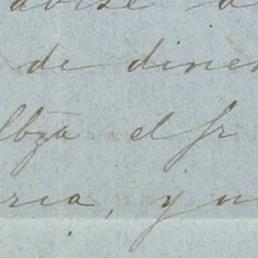 avise a
de diner
lbza el sr
ria, y u